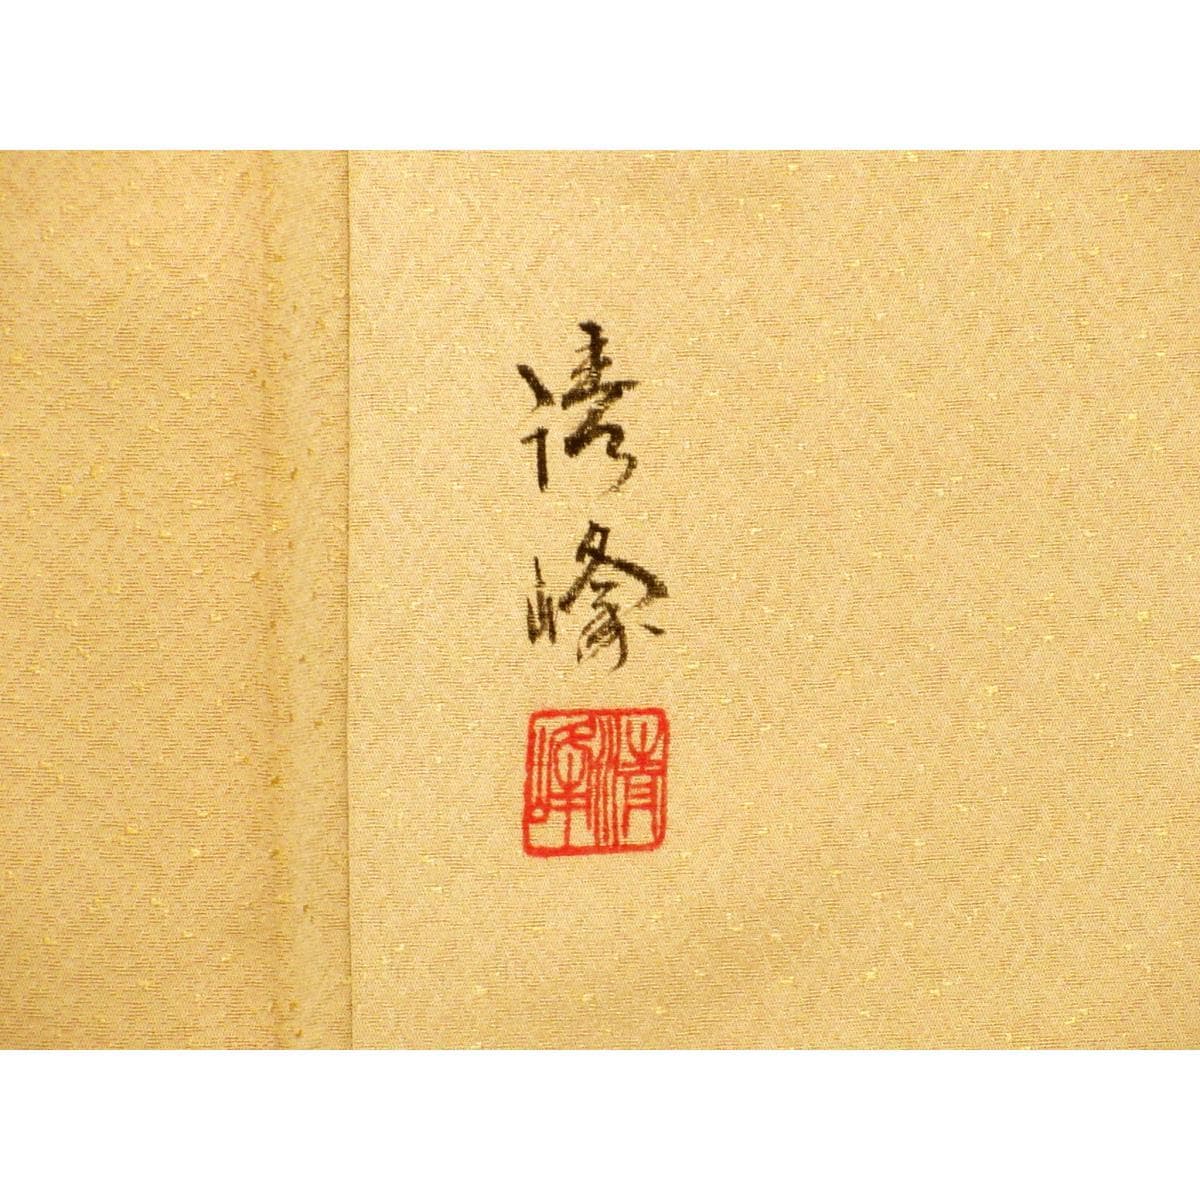 清峰
清峰